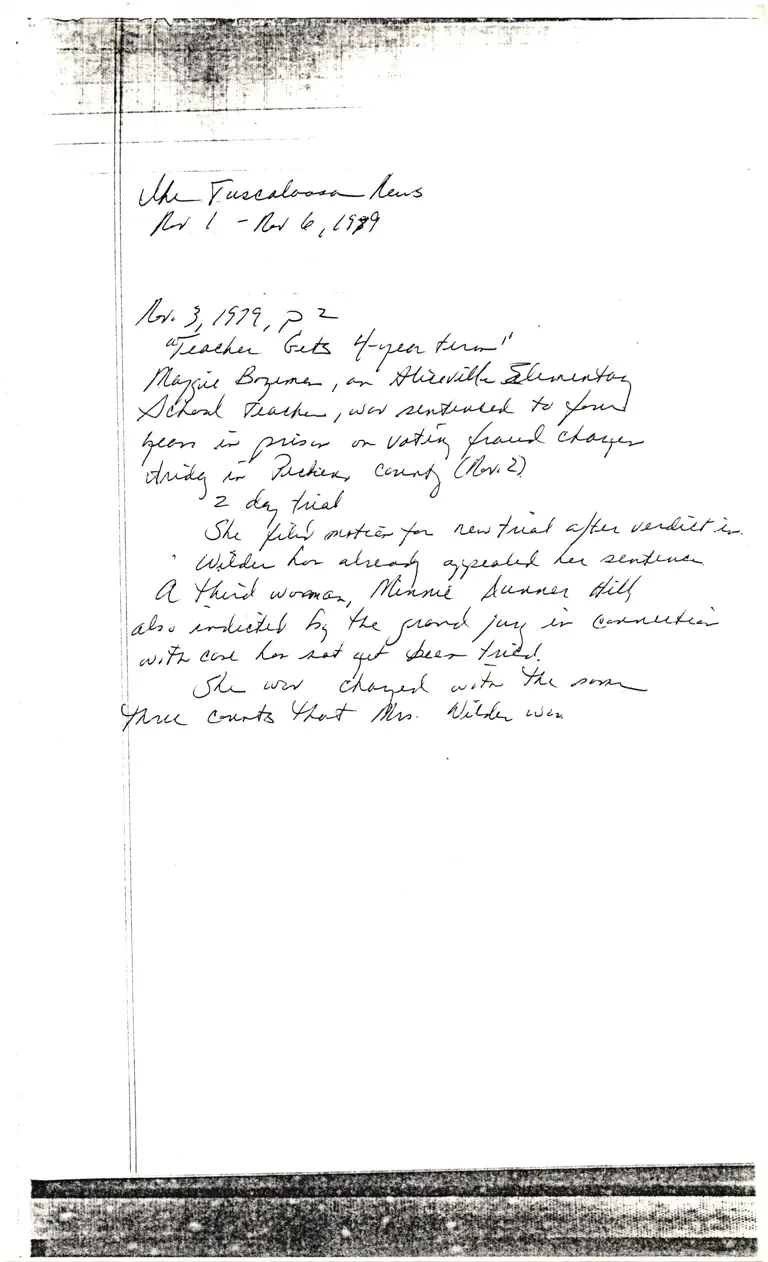 The Tuscaloosa News
Nov 1 - Nov 6, 1979
Nov. 3, 1979, p 2
"Teacher Gets 4-year term"
Maggie Bozeman, an Aliceville Elementary
School Teacher, was sentenced to four
years in prison on voting fraud charges
Friday in Pickens County (Nov. 2)
2 day trial
She filed motion for new trial after verdict in.
Wilder has already appealed her sentence
A third woman, Minnie Dunner Hill
also indicted by the grand jury in connection
with case has not yet been tried.
She was charged with the same
three counts that Mrs. Wilder was